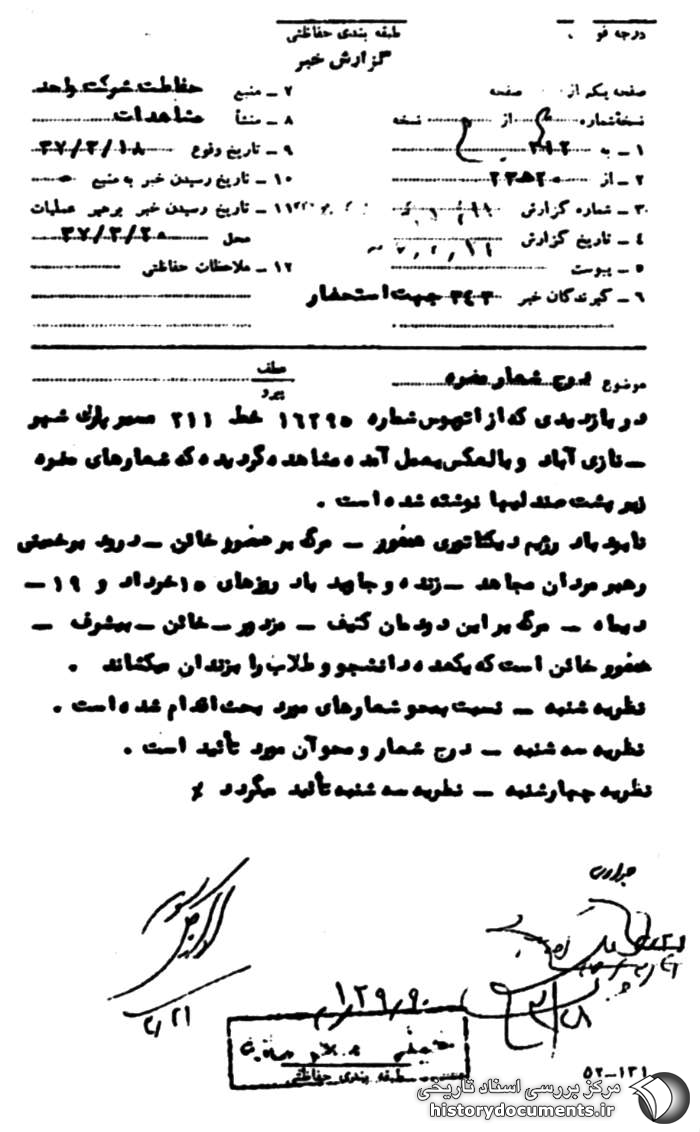 درجه فو
طبقه بندی حفاظتی
گزارش خبر
صفحه یکم از صفحه
نسخه شماره از نسخه
۱ ــ به ۳۱۲
۲ ــ از ۲۳۵۲۰
۳ ــ شماره گزارش
۴ ــ تاریخ گزارش
۵ ــ پیوست
۶ ــ گیرندگان خبر ۳۴۳ جهت استحضار
۷ ــ منبع حفاظت شرکت واحد
۸ ــ منشأ مشاهدات
۹ ــ تاریخ وقوع ۳۷/۳/۱۸
۱۰ ــ تاریخ رسیدن خبر به منبع
۱۱ ــ تاریخ رسیدن خبر برهبر عملیات
محل ۳۷/۳/۲۰
۱۲ ــ ملاحظات حفاظتی
موضوع درج شعار مضره
عطف
پیرو
در بازدیدی که از اتوبوس شماره ۱۶۲۹۵ خط ۲۱۱ مسیر پارک شهر
ــ نازی آباد و بالعکس بعمل آمده مشاهده گردیده که شعارهای مضره
زیر پشت صندلیها نوشته شده است .
نابود باد رژیم دیکتاتوری ــ مرگ بر خائن ــ درود بر خمینی
رهبر مردان مجاهد ــ زنده و جاوید باد روزهای ۱۵ خرداد و ۱۹ ــ
دیماه ــ مرگ بر این دودمان کثیف ــ مزدور ــ خائن ــ بیشرف ــ
خائن است که یکعده دانشجو و طلاب را بزندان میکشاند .
نظریه شنبه ــ نسبت بمحو شعارهای مورد بحث اقدام شده است .
نظریه سه شنبه ــ درج شعار و محو آن مورد تأئید است .
نظریه چهارشنبه ــ نظریه سه شنبه تأئید میگردد
طبقه بندی حفاظتی
۵۲-۱۳۱
مرکز بررسی اسناد تاریخی
historydocuments.ir